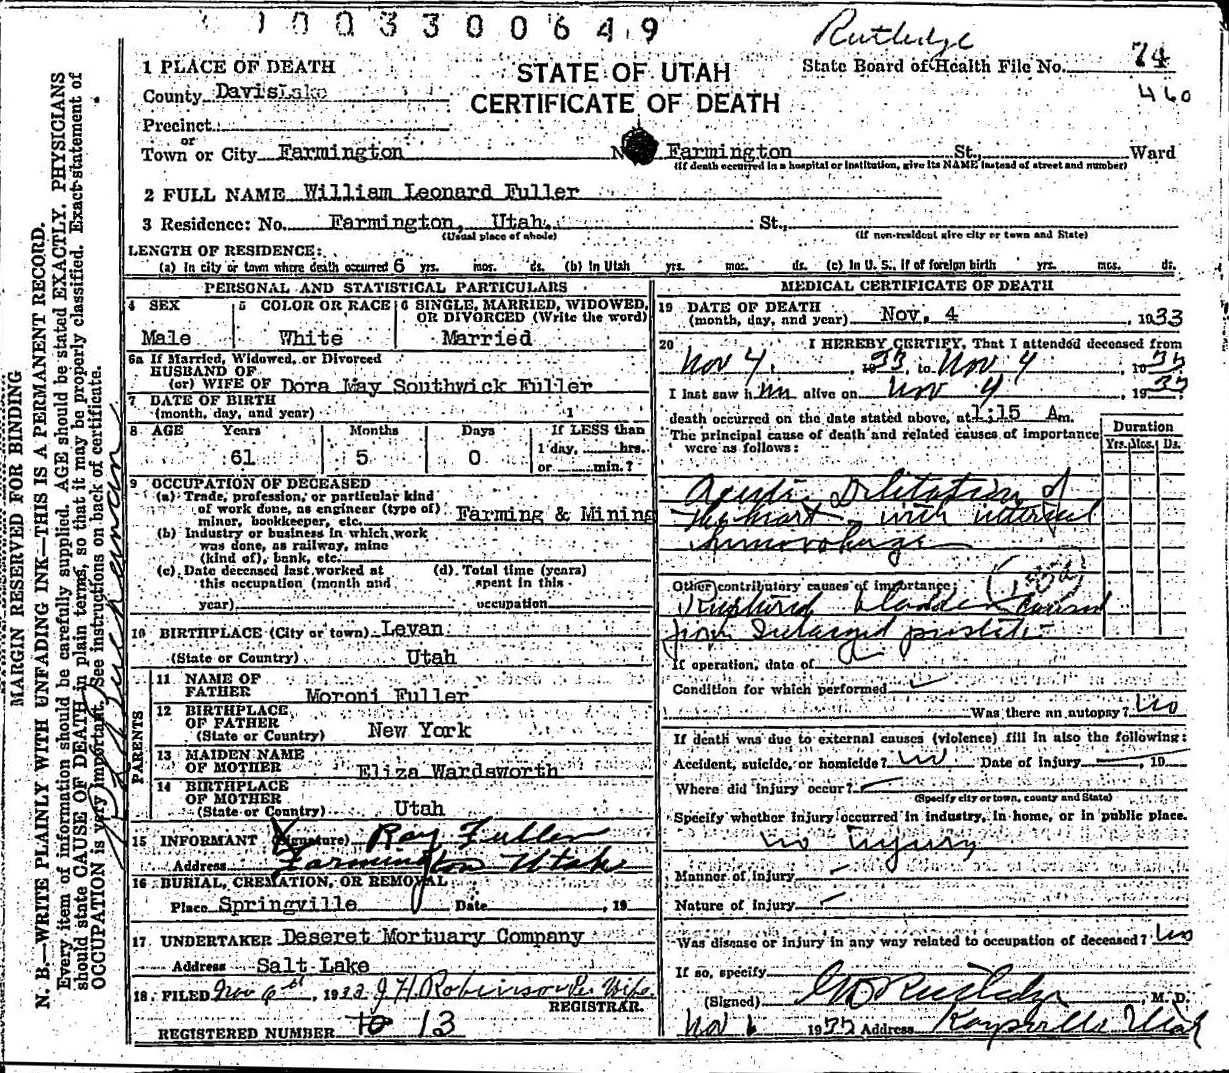 1003300649
Rutledge
1 PLACE OF DEATH
STATE OF UTAH
State Board of Health File No. 74
County Davis Lake
CERTIFICATE OF DEATH
460
Precinct
or
Town or City Farmington No. Farmington St., Ward
(If death occurred in a hospital or institution, give its NAME instead of street and number)
2 FULL NAME William Leonard Fuller
3 Residence: No. Farmington, Utah. St.,
(Usual place of abode) (If non-resident give city or town and State)
LENGTH OF RESIDENCE:
(a) In city or town where death occurred 6 yrs. mos. ds. (b) In Utah yrs. mos. ds. (c) In U. S., if of foreign birth yrs. mos. ds.
PERSONAL AND STATISTICAL PARTICULARS
4 SEX 5 COLOR OR RACE 6 SINGLE, MARRIED, WIDOWED, OR DIVORCED (Write the word)
Male White Married
6a If Married, Widowed, or Divorced
HUSBAND OF
(or) WIFE OF Dora May Southwick Fuller
7 DATE OF BIRTH
(month, day, and year) 1
8 AGE Years Months Days If LESS than
61 5 0 1 day, hrs.
or min.?
9 OCCUPATION OF DECEASED
(a) Trade, profession, or particular kind
of work done, as engineer (type of) Farming & Mining
miner, bookkeeper, etc.
(b) Industry or business in which work
was done, as railway, mine
(kind of), bank, etc.
(c) Date deceased last worked at (d) Total time (years)
this occupation (month and spent in this
year) occupation
10 BIRTHPLACE (City or town) Levan
(State or Country) Utah
PARENTS
11 NAME OF
FATHER Moroni Fuller
12 BIRTHPLACE
OF FATHER
(State or Country) New York
13 MAIDEN NAME
OF MOTHER Eliza Wardsworth
14 BIRTHPLACE
OF MOTHER
(State or Country) Utah
15 INFORMANT (Signature) Ray Fuller
Address Farmington Utah
16 BURIAL, CREMATION, OR REMOVAL
Place Springville Date , 19
17 UNDERTAKER Deseret Mortuary Company
Address Salt Lake
18 FILED Nov 6th, 1933 J H Robinson Per Wife.
REGISTRAR.
REGISTERED NUMBER 10 13
MEDICAL CERTIFICATE OF DEATH
19 DATE OF DEATH
(month, day, and year) Nov. 4 , 1933
20 I HEREBY CERTIFY, That I attended deceased from
Nov 4, 1933, to Nov 4, 1933
I last saw him alive on Nov 4, 1933
death occurred on the date stated above, at 1:15 Am.
The principal cause of death and related causes of importance
were as follows:
Duration
Yrs. Mos. Ds.
Acute Dilitation of
the heart, with internal
hemorrhage
Other contributory causes of importance:
Ruptured bladder caused
from Enlarged prostate
If operation, date of
Condition for which performed
Was there an autopsy? No
If death was due to external causes (violence) fill in also the following:
Accident, suicide, or homicide? No Date of injury , 19
Where did injury occur?
(Specify city or town, county and State)
Specify whether injury occurred in industry, in home, or in public place.
No injury
Manner of injury
Nature of injury
Was disease or injury in any way related to occupation of deceased? No
If so, specify
(Signed) G D Rutledge, M. D.
Nov 6 1933 Address Kaysville Utah
MARGIN RESERVED FOR BINDING
N. B.—WRITE PLAINLY WITH UNFADING INK—THIS IS A PERMANENT RECORD.
Every item of information should be carefully supplied. AGE should be stated EXACTLY. PHYSICIANS
should state CAUSE OF DEATH in plain terms, so that it may be properly classified. Exact statement of
OCCUPATION is very important. See instructions on back of certificate.